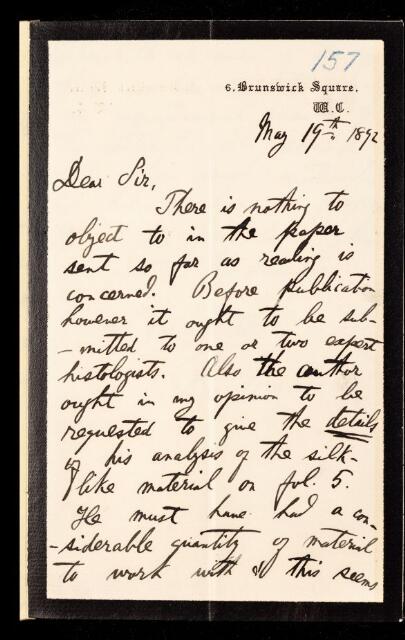 157
6. Brunswick Square.
W.C.
May 19th 1892
Dear Sir,
There is nothing to
object to in the paper
sent so far as reading is
concerned. Before publication
however it ought to be sub-
-mitted to one or two expert
histologists. Also the author
ought in my opinion to be
requested to give the details
of his analysis of the silk-
like material on fol. 5.
He must have had a con-
-siderable quantity of material
to work with & this seems